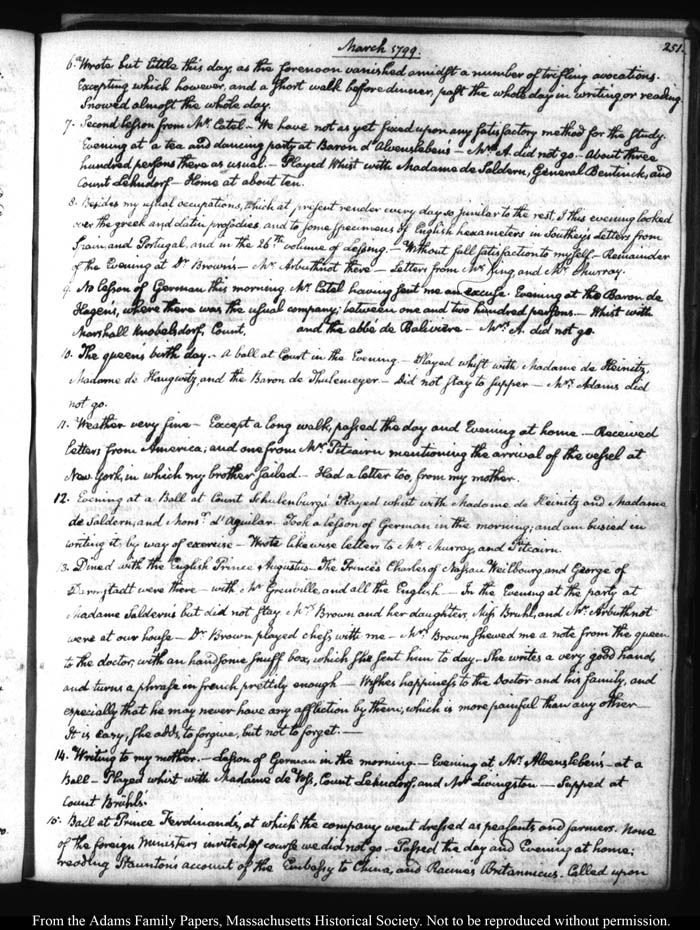 March 1799.
251.
6. Wrote but little this day, as the forenoon vanished amidst a number of trifling avocations.
Excepting which however, and a short walk before dinner, past the whole day in writing or reading
Snowed almost the whole day.
7. Second lesson from Mr. Catel — We have not as yet fixed upon any satisfactory method for the study.
Evening at a tea and dancing party at Baron d'Alvenslebens — Mrs. A. did not go. — About three
hundred persons there as usual. — Played Whist with Madame de Saldern, General Bentinck, and
Count Lehndorf — Home at about ten.
8. Besides my usual occupations, which at present render every day so similar to the rest, I this evening looked
over the greek and latin prosodies, and to some specimens of English hexameters in Southey's Letters from
Spain and Portugal, and in the 26th. volume of Lessing. — Without full satisfaction to myself — Remainder
of the Evening at Dr. Brown's — Mr. Arbuthnot there — Letters from Mr. King, and Mr. Murray.
9. No lesson of German this morning, Mr. Catel having sent me an excuse. Evening at the Baron de
Hagen's, where there was the usual company; between one and two hundred persons. — Whist with
Marshall Knobelsdorf, Count. and the abbé de Balivière — Mrs. A. did not go.
10. The queen's birth day. — A ball at Court in the Evening — Played whist with Madame de Heinitz,
Madame de Haugwitz, and the Baron de Thulemeyer — Did not stay to supper — Mrs. Adams did
not go.
11. Weather very fine — Except a long walk, passed the day and Evening at home. — Received
letters from America; and one from Mr. Pitcairn mentioning the arrival of the vessel at
New York, in which my brother sailed — Had a letter too, from my mother.
12. Evening at a Ball at Count Schulenburg's. Played whist with Madame de Heinitz and Madame
de Saldern, and Monsr. d'Aguilar. Took a lesson of German in the morning, and am busied in
writing it, by way of exercise — Wrote likewise letters to Mr. Murray, and Pitcairn.
13. Dined with the English Prince Augustus — The Princes Charles of Nassau Weilbourg, and George of
Darmstadt were there — with Mr. Grenville, and all the English — In the Evening at the party at
Madame Saldern's but did not stay. Mrs. Brown and her daughters, Miss Bruhl, and Mr. Arbuthnot
were at our house — Dr. Brown played chess with me — Mrs. Brown shewed me a note from the queen
to the doctor, with an handsome snuff box, which she sent him to day. She writes a very good hand,
and turns a phrase in french prettily enough — Wishes happiness to the Doctor and his family, and
especially that he may never have any affliction by them, which is more painful than any other —
It is easy, she adds, to forgive, but not to forget. —
14. Writing to my mother. — Lesson of German in the morning — Evening at Mr. Alvensleben's — at a
Ball — Played whist with Madame de Voss, Count Lehndorf, and Mr. Livingston — Supped at
Count Brühl's.
15. Ball at Prince Ferdinand's, at which the company went dressed as peasants and farmers. None
of the foreign Ministers invited, of course we did not go — Passed the day and Evening at home;
reading Staunton's account of the Embassy to China, and Racine's Britannicus. Called upon
From the Adams Family Papers, Massachusetts Historical Society. Not to be reproduced without permission.